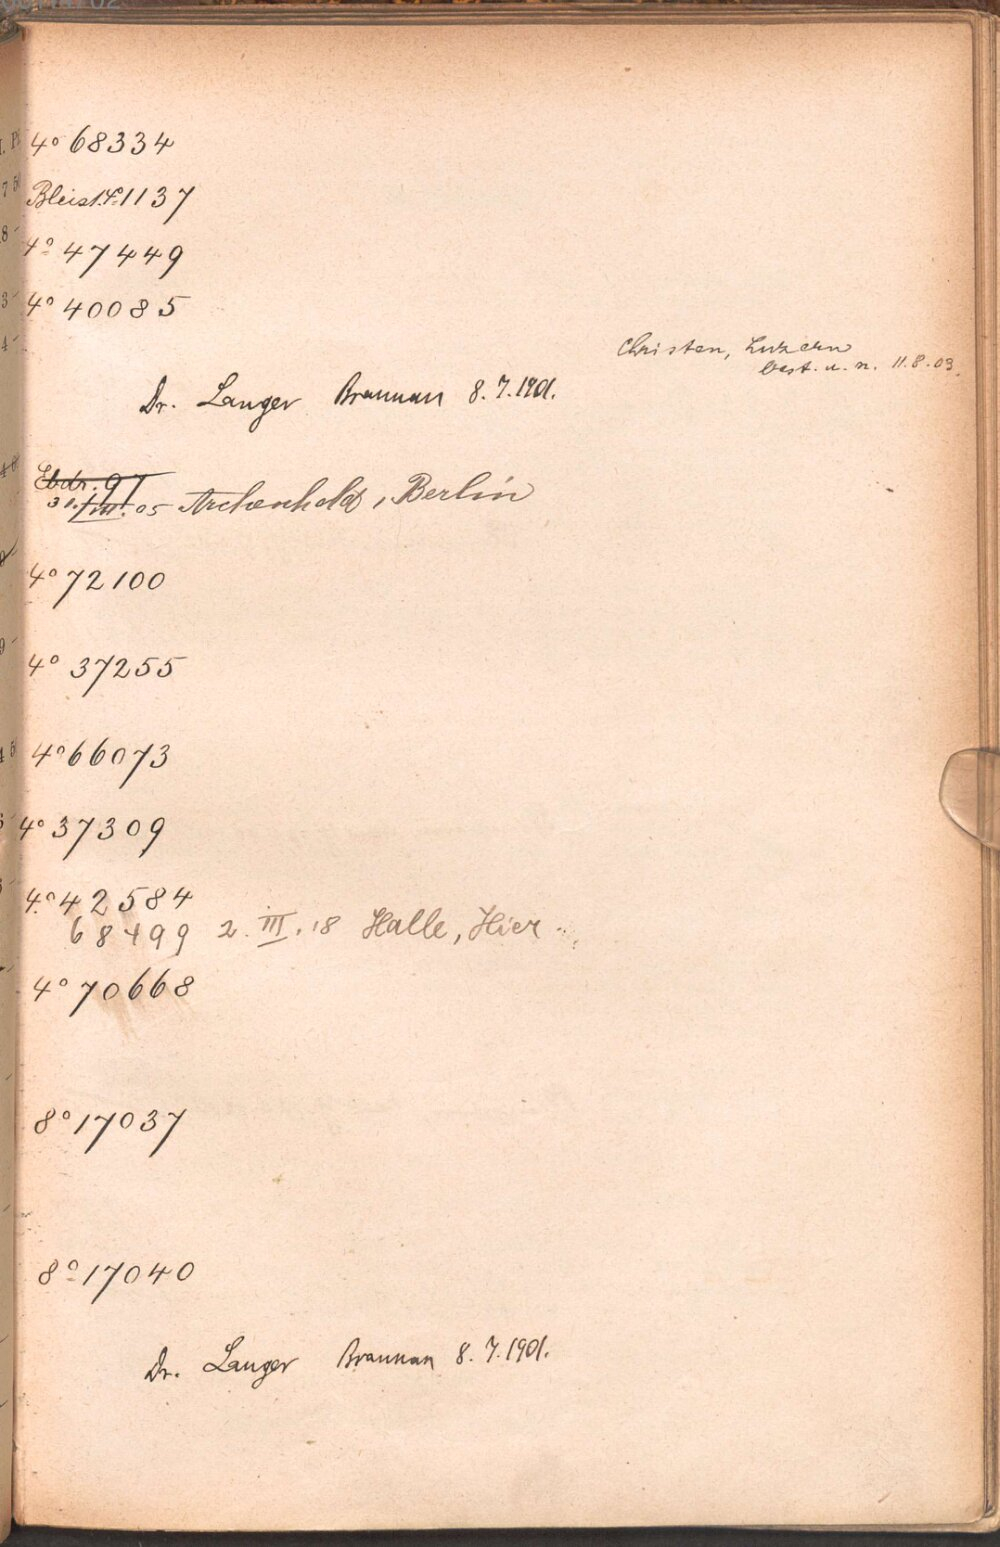 4° 68334
Bleist. 4° 1137
4° 47449
4° 40085
Christen, Luzern
best. u. n. 11.8.03.
Dr. Langer Braunau 8.7.1901.
Ebdr. 97
31./VIII. 05 Archenhold, Berlin
4° 72100
4° 37255
4° 66073
4° 37309
4° 42584
68499 2. III. 18 Halle, Hier
4° 70668
8° 17037
8° 17040
Dr. Langer Braunau 8.7.1901.